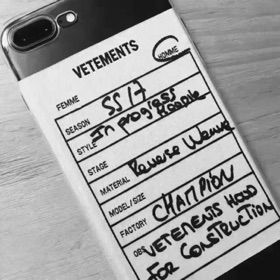 VETEMENTS
FEMME HOMME
SEASON SS17
STYLE In progress Hoodie
STAGE
MATERIAL Reverse Weave
MODEL/SIZE
FACTORY CHAMPION
OBS. VETEMENTS HOOD
FOR CONSTRUCTION